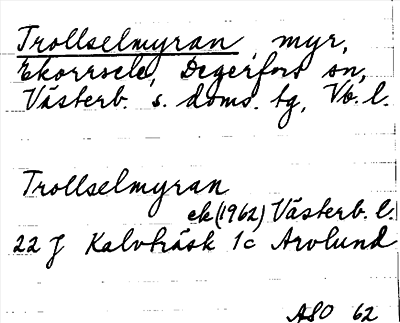 Trollselmyran, myr,
Ekorrsele, Degerfors sn,
Västerb. s. doms. tg, Vb. l.
Trollselmyran
ek (1962) Västerb. l.
22 J Kalvträsk 1c Avolund
ASO 62